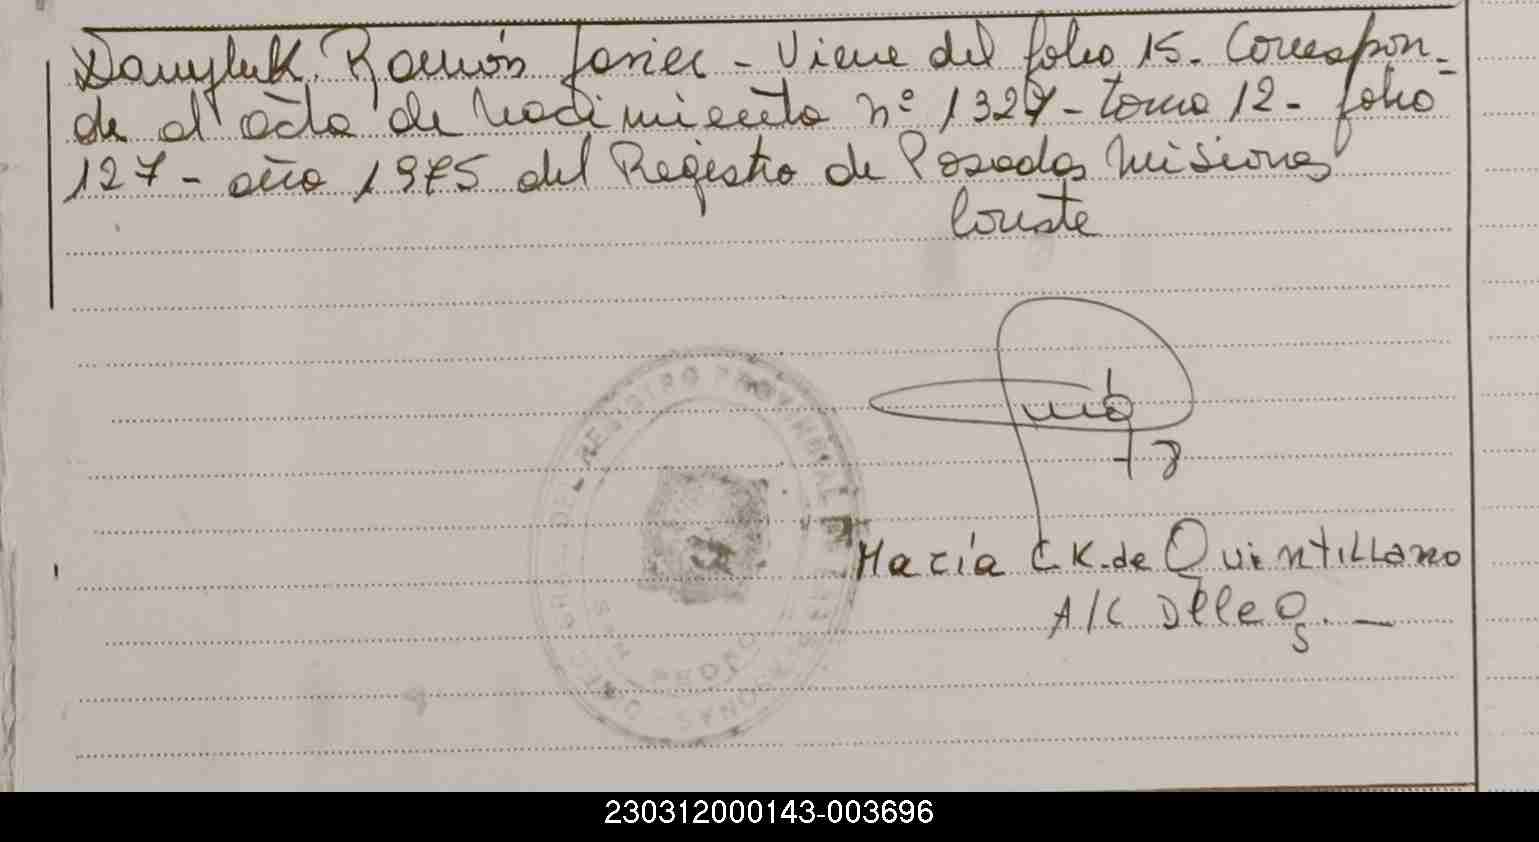 Danyluk. Ramón Javier - Viene del folio 15. Correspon-
de al acta de nacimiento nº 1327 - tomo 12 - folio
127 - año 1975 del Registro de Posadas Misiones
Conste
REGISTRO PROVINCIAL DE
María C K. de Quintillano
A/C Dlleg. —
SAN PEDRO
230312000143-003696